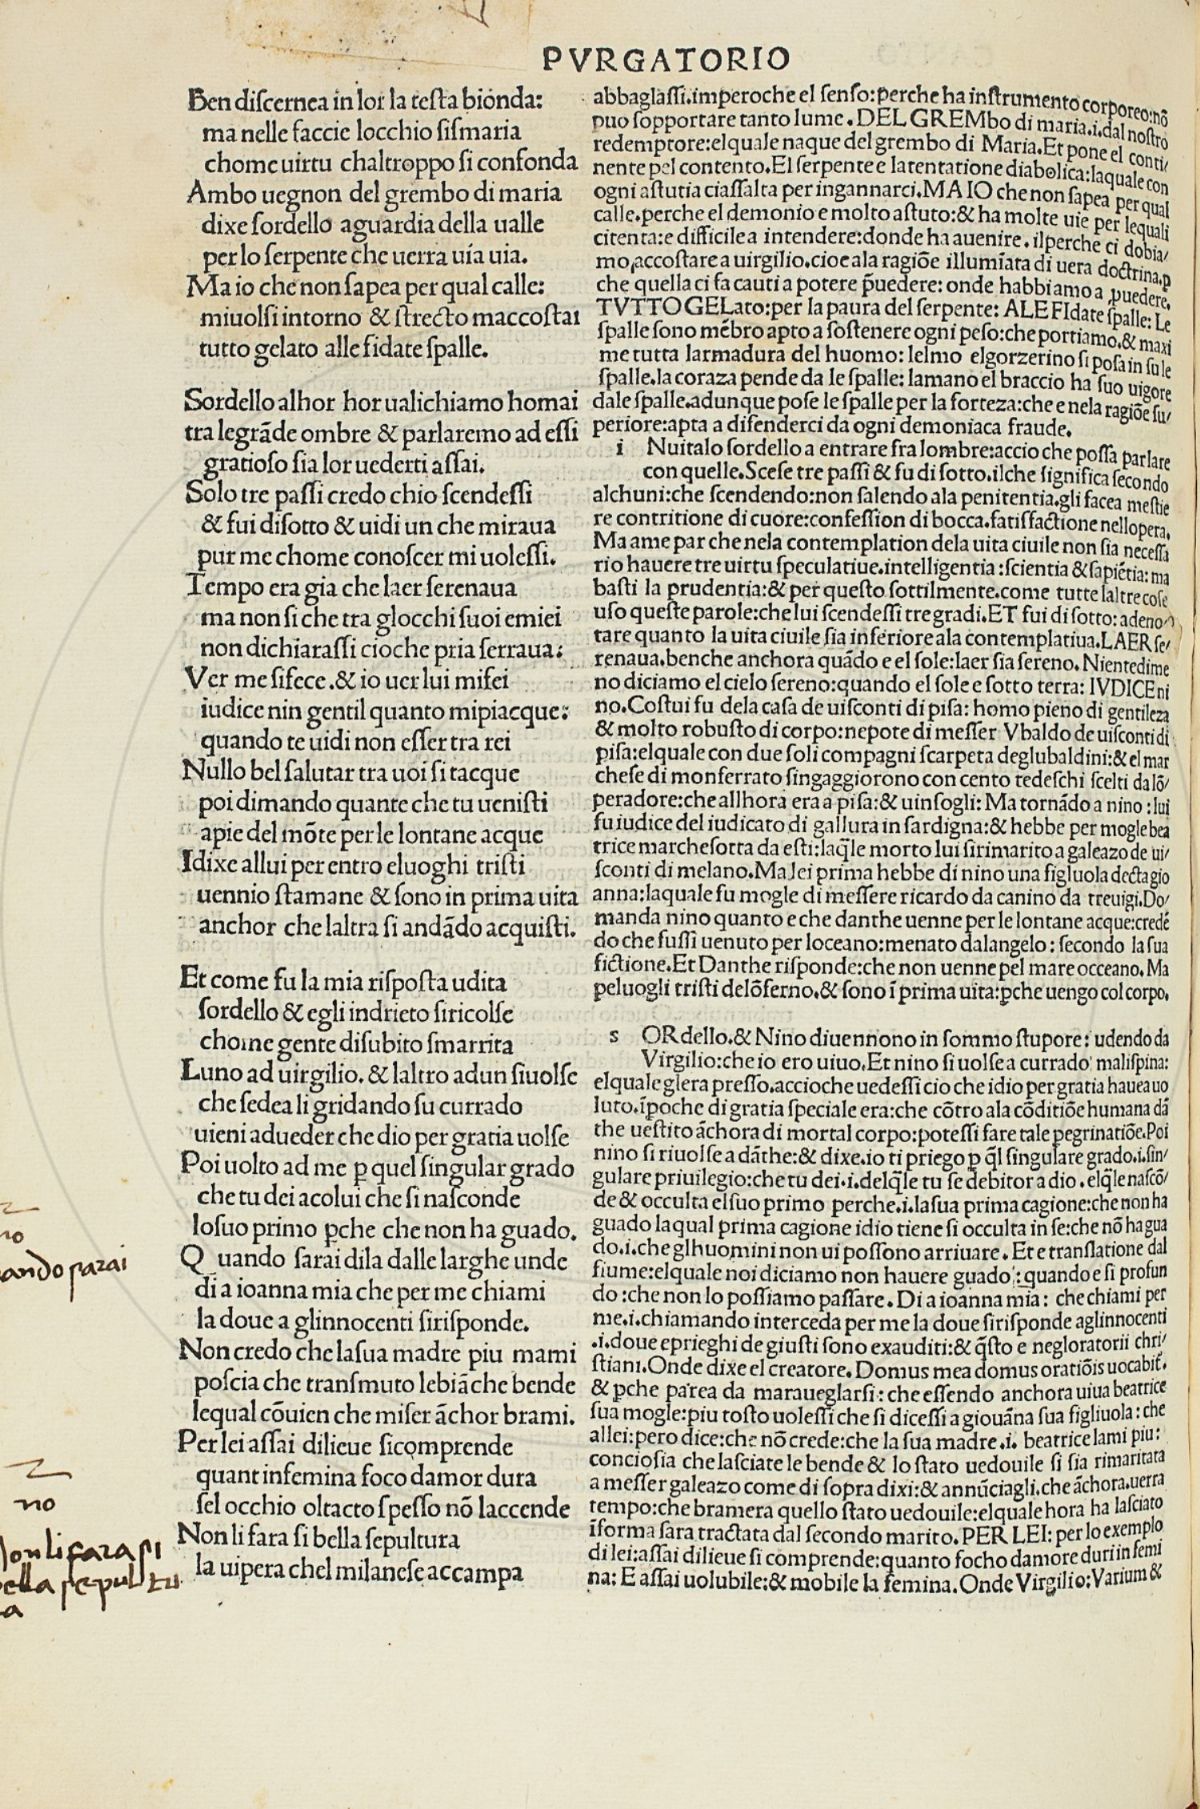 PVRGATORIO
Ben discernea in lor la testa bionda:
ma nelle faccie locchio sismaria
chome uirtu chaltroppo si confonda
Ambo uegnon del grembo di maria
dixe sordello aguardia della ualle
per lo serpente che uerra uia uia.
Ma io che non sapea per qual calle:
miuolsi intorno & strecto maccostai
tutto gelato alle fidate spalle.
Sordello alhor hor ualichiamo homai
tra legrāde ombre & parlaremo ad essi
gratioso sia lor uederti assai.
Solo tre passi credo chio scendessi
& fui disotto & uidi un che miraua
pur me chome conoscer mi uolessi.
Tempo era gia che laer serenaua
ma non si che tra glocchi suoi emiei
non dichiarassi cioche pria serraua:
Ver me sifece.& io uer lui mifei
iudice nin gentil quanto mipiacque:
quando te uidi non esser tra rei
Nullo bel salutar tra uoi si tacque
poi dimando quante che tu uenisti
apie del mōte per le lontane acque
Idixe allui per entro eluoghi tristi
uennio stamane & sono in prima uita
anchor che laltra si andādo acquisti.
Et come fu la mia risposta udita
sordello & egli indrieto siricolse
chome gente disubito smarrita
Luno ad uirgilio.& laltro adun siuolse
che sedea li gridando su currado
uieni adueder che dio per gratia uolse
Poi uolto ad me ꝑ quel singular grado
che tu dei acolui che si nasconde
losuo primo ꝑche che non ha guado.
Quando sarai dila dalle larghe unde
di a ioanna mia che per me chiami
la doue a glinnocenti sirisponde.
Non credo che lasua madre piu mami
poscia che transmuto lebiāche bende
lequal cōuien che miser āchor brami.
Per lei assai dilieue sicomprende
quant in femina foco damor dura
sel occhio oltacto spesso nō laccende
Non li fara si bella sepultura
la uipera chel milanese accampa
abbaglassi.imperoche el senso:perche ha instrumento corporeo:nō
puo sopportare tanto lume.DEL GREMbo di maria.i.dal nostro
redemptore:elquale naque del grembo di Maria.Et pone el conti/
nente pel contento.El serpente e latentatione diabolica:laquale con
ogni astutia ciassalta per ingannarci.MA IO che non sapea per qual
calle.perche el demonio e molto astuto:& ha molte uie per lequali
citenta:e difficile a intendere:donde ha auenire.ilperche ci dobia/
mo,accostare a uirgilio.cioe ala ragiōe illumīata di uera doctrina.ꝑ
che quella ci fa cauti a potere p̄uedere:onde habbiamo a p̄uedere.
TVTTO GELato:per la paura del serpente: ALE FIdate spalle: Le
spalle sono mēbro apto a sostenere ogni peso:che portiamo.& maxi
me tutta larmadura del huomo: lelmo elgorzerino si posa in su le
spalle.la coraza pende da le spalle: lamano el braccio ha suo uigore
dale spalle.adunque pose le spalle per la forteza:che e nela ragiōe su/
periore:apta a difenderci da ogni demoniaca fraude.
i Nuitalo sordello a entrare fra lombre:accio che possa parlare
con quelle.Scese tre passi & fu di sotto.ilche significa secondo
alchuni:che scendendo:non salendo ala penitentia.gli facea mestie
re contritione di cuore:confession di bocca.satisfactione nellopera.
Ma ame par che nela contemplation dela uita ciuile non sia necessa
rio hauere tre uirtu speculatiue.intelligentia:scientia & sapiētia: ma
basti la prudentia:& per questo sottilmente.come tutte laltre cose
uso queste parole:che lui scendessi tre gradi.ET fui di sotto: adeno
tare quanto la uita ciuile sia inferiore ala contemplatiua.LAER se/
renaua.benche anchora quādo e el sole:laer sia sereno.Nientedime
no diciamo el cielo sereno:quando el sole e sotto terra: IVDICE ni
no.Costui fu dela casa de uisconti di pisa: homo pieno di gentileza
& molto robusto di corpo:nepote di messer Vbaldo de uisconti di
pisa:elquale con due soli compagni scarpeta deglubaldini:& el mar
chese di monferrato singaggiorono con cento tedeschi scelti da lō/
peradore:che allhora era a pisa:& uinsogli: Ma tornādo a nino:lui
fu iudice del iudicato di gallura in sardigna:& hebbe per mogle bea
trice marchesotta da esti:laq̄le morto lui sirimarito a galeazo de ui/
sconti di melano.Ma lei prima hebbe di nino una figluola decta gio
anna:laquale fu mogle di messere ricardo da canino da treuigi.Do/
manda nino quanto e che danthe uenne per le lontane acque:credē
do che fussi uenuto per loceano:menato dalangelo: secondo la sua
fictione.Et Danthe risponde:che non uenne pel mare occeano.Ma
peluogli tristi delōferno.& sono ī prima uita:ꝑche uengo col corpo.
s ORdello.& Nino diuennono in sommo stupore: udendo da
Virgilio:che io ero uiuo.Et nino si uolse a currado malispina:
elquale glera presso.accioche uedessi cio che idio per gratia hauea uo
luto.īpoche di gratia speciale era:che cōtro ala cōditiōe humana dā
the uestito āchora di mortal corpo:potessi fare tale pegrinatiōe.Poi
nino si riuolse a dāthe:& dixe.io ti priego ꝑ q̄l singulare grado.i.sin/
gulare priuilegio:che tu dei.i.delq̄le tu se debitor a dio.elq̄le nascō/
de & occulta el suo primo perche.i.lasua prima cagione:che non ha
guado laqual prima cagione idio tiene si occulta in se:che nō ha gua
do.i.che glhuomini non ui possono arriuare.Et e translatione dal
fiume:elquale noi diciamo non hauere guado:quando e si profun
do:che non lo possiamo passare.Di a ioanna mia: che chiami per
me.i.chiamando interceda per me la doue sirisponde aglinnocenti
.i.doue e prieghi de giusti sono exauditi:& q̄sto e negloratorii chri/
stiani.Onde dixe el creatore.Domus mea domus oratiōis uocabit̄.
& ꝑche parea da marauegIarsi:che essendo anchora uiua beatrice
sua mogle:piu tosto uolessi che si dicessi a giouāna sua figliuola:che
allei:pero dice:che nō crede:che la sua madre.i. beatrice lami piu:
conciosia che lasciate le bende & lo stato uedouile si sia rimaritata
a messer galeazo come di sopra dixi:& annūciagli.che āchora.uerra
tempo:che bramera quello stato uedouile:elquale hora ha lasciato
īforma sara tractata dal secondo marito.PER LEI: per lo exemplo
di lei:assai dilieue si comprende:quanto focho damore duri in femi
na: E assai uolubile:& mobile la femina.Onde Virgilio:Varium &
no
no